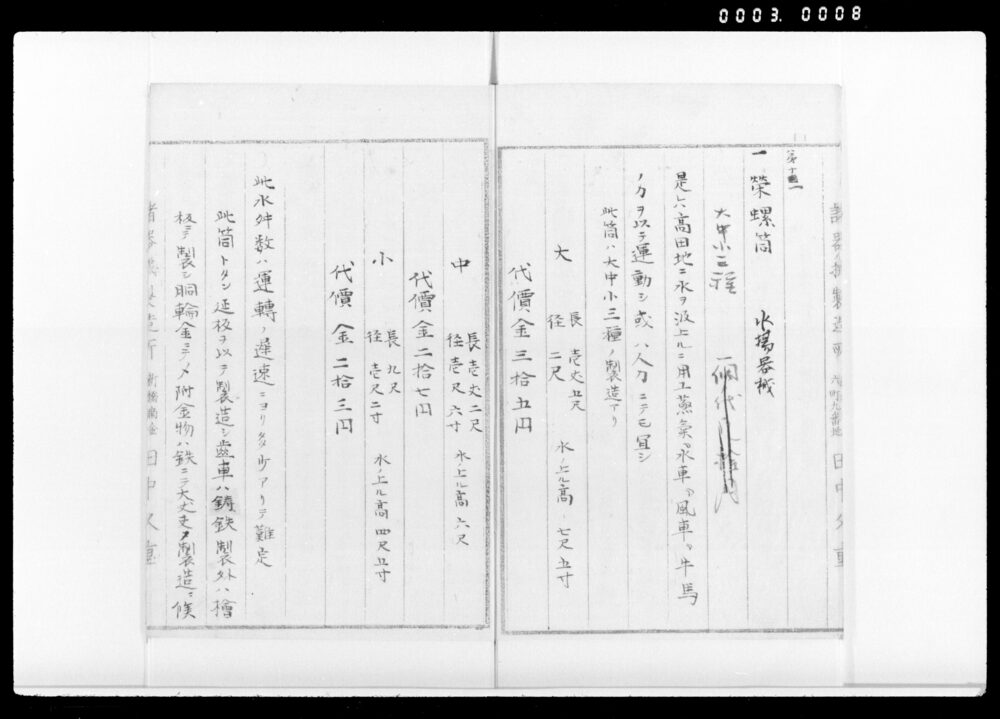 0003. 0008
諸器械製造所 六町九番地 田中久重
第十四
一 榮螺筒 水揚器械
大中小三種
是ハ高田地ニ水ヲ汲上ルニ用エ蒸氣、水車、風車、牛馬
ノ力ヲ以テ運動シ或ハ人力ニテモ宜シ
此筒ハ大中小三種ノ製造アリ
大 長壱丈五尺 径二尺 水ノ上ル高 七尺五寸
代價金三拾五円
中 長壱丈二尺 径壱尺六寸 水ノ上ル高 六尺
代價金二拾七円
小 長九尺 径壱尺二寸 水ノ上ル高 四尺五寸
代價金二拾三円
此水舛数ハ運轉ノ遅速ニヨリ多少アリテ難定
此筒トタン延板ヲ以テ製造シ歯車ハ鋳鉄製外ハ檜
板ニテ製シ胴輪金ニテ〆附金物ハ鉄ニテ大丈夫ニ製造候
諸器械製造所 新橋南金 田中久重